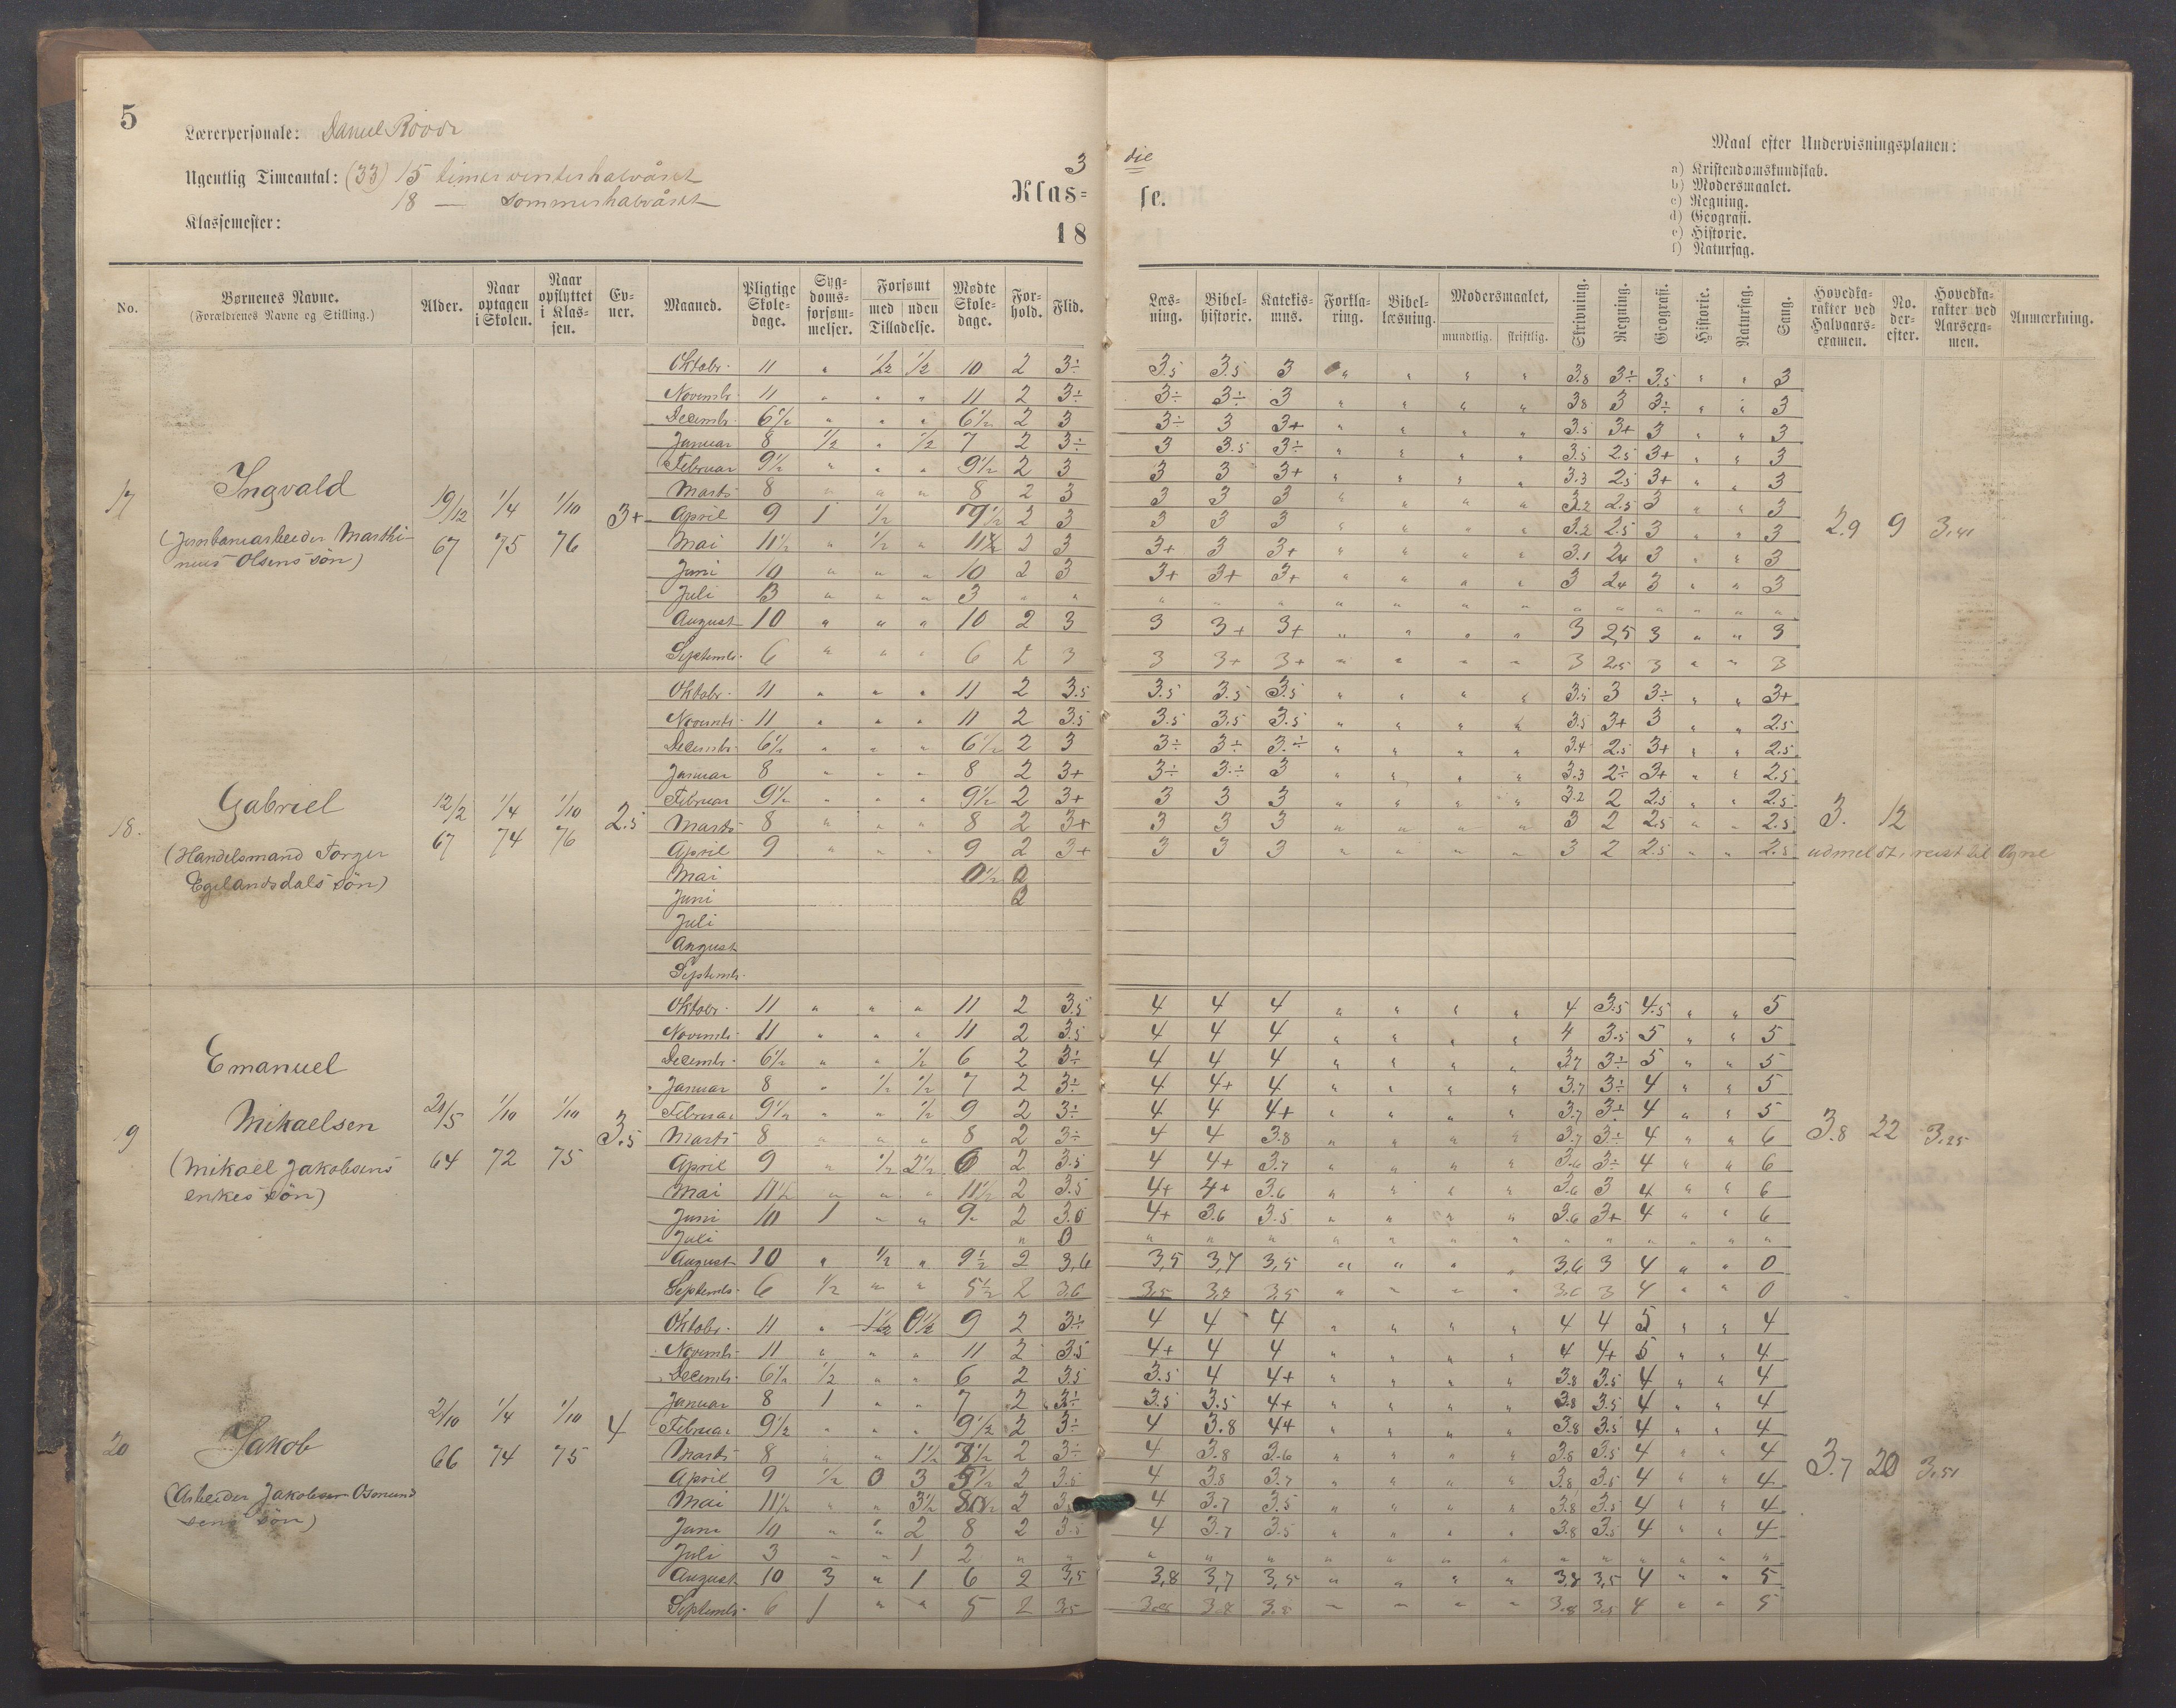 5
Lærerpersonale: Daniel
Ugentlig Timeantal: (33) 15 timer vinterhalvåret
18 — sommerhalvåret
Klassemester:
3 die
Klas= se.
18
Maal efter Undervisningsplanen:
a) Kristendomskundskab.
b) Modersmaalet.
c) Regning.
d) Geografi.
e) Historie.
f) Naturfag.
No. Børnenes Navne. (Forældrenes Navne og Stilling.) Alder. Naar optagen i Skolen. Naar opflyttet i Klassen. Evner. Maaned. Pligtige Skoledage. Sygdomsforsømmelser. Forsømt med uden Tilladelse. Mødte Skoledage. Forhold. Flid. Læsning. Bibelhistorie. Katekismus. Forklaring. Bibellæsning. Modersmaalet, mundtlig. skriftlig. Skrivning. Regning. Geografi. Historie. Naturfag. Sang. Hovedkarakter ved Halvaarsexamen. No. derefter. Hovedkarakter ved Aarsexamen. Anmærkning.
17 Ingvald
(Jernbanearbeider Marthinius Olsens søn)
19/12 67 1/4 75 1/10 76 3+
Oktobr. 11 " 1/2 1/2 10 2 3÷ 3.5 3.5 3 " " " " 3.8 3÷ 3.5 " " 3
Novembr. 11 " " " 11 2 3÷ 3÷ 3÷ 3 " " " " 3.8 3 3÷ " " 3
Decembr. 6 1/2 " " " 6 1/2 2 3 3÷ 3 3+ " " " " 3.5 3+ 3 " " 3
Januar 8 1/2 " 1/2 7 2 3÷ 3 3.5 3÷ " " " " 3.5 2.5 3+ " " 3
Februar 9 1/2 " " " 9 1/2 2 3 3 3 3+ " " " " 3.3 2.5 3+ " " 3
Marts 8 " " " 8 2 3 3 3 3 " " " " 3.2 2.5 3 " " 3
April 9 1 1/2 2 3 3 3 3 " " " " 3.2 2.5 3 " " 3
Mai 11 1/2 " 1/2 " 2 3 3+ 3 3+ " " " " 3.1 2.4 3 " " 3
Juni 10 " " " 10 2 3 3+ 3+ 3+ " " " " 3 2.4 3 " " 3
Juli 3 " " " 3 " " " " " " " " " " " " " " "
August 10 " " " 10 2 3 3 3+ 3+ " " " " 3 2,5 3 " " 3
Septembr. 6 " " " 6 2 3 3 3+ 3+ " " " " 3 2.5 3 " " 3
2.9 9 3,41
18. Gabriel
(Handelsmand Torger Egelandsdals søn)
12/2 67 1/4 74 1/10 76 2.5
Oktobr. 11 " " " 11 2 3.5 3.5 3.5 3.5 " " " " 3.5 3 3÷ " " 3+
Novembr. 11 " " " 11 2 3.5 3.5 3.5 3.5 " " " " 3.5 3+ 3 " " 2.5
Decembr. 6 1/2 " " " 6 1/2 2 3 3÷ 3÷ 3÷ " " " " 3.4 2.5 3+ " " 2.5
Januar 8 " " " 8 2 3+ 3÷ 3÷ 3 " " " " 3.3 2÷ 3+ " " 2.5
Februar 9 1/2 " " " 9 1/2 2 3+ 3 3 3 " " " " 3.2 2 2.5 " " 2.5
Marts 8 " " " 8 2 3+ 3 3 3 " " " " 3 2 2.5 " " 2.5
April 9 " " " 9 2 3+ 3 3 3 " " " " 3 2 2.5 " " 2.5
Mai 0 1/2 2
Juni 2
Juli
August
Septembr.
3. 12
udmeldt, reist til Ogne
19 Emanuel Mikaelsen
(Mikael Jakobsens enkes søn)
21/5 64 1/10 72 1/10 75 3.5
Oktobr. 11 " " " 11 2 3.5 4 4 4 " " " " 4 3.5 4.5 " " 5
Novembr. 11 " " " 11 2 3.5 4 4 4 " " " " 4 3.5 5 " " 5
Decembr. 6 1/2 " " 1/2 6 2 3÷ 4 4 4 " " " " 3.7 3÷ 5 " " 5
Januar 8 " 1/2 1/2 7 2 3÷ 4 4+ 4 " " " " 3.7 3÷ 4 " " 5
Februar 9 1/2 " " 1/2 9 2 3÷ 4 4 4+ " " " " 3.7 3÷ 4 " " 5
Marts 8 " " " 8 2 3÷ 4 4 3.8 " " " " 3.7 3÷ 4 " " 6
April 9 " 1/2 2 1/2 6 2 3.5 4 4+ 3.7 " " " " 3.6 3÷ 4 " " 6
Mai 11 1/2 " " " 11 1/2 2 3.5 4+ 4+ 3.6 " " " " 3.6 3 4 " " 6
Juni 10 1 " " 9 2 3.0 4+ 3.6 3.5 " " " " 3.6 3+ 4 " " 6
Juli " 0 " " " " " " " " " " " " "
August 10 " 1/2 " 9 1/2 2 3,6 3,5 3,7 3,5 " " " " 3,6 3 4 " " 0
Septembr. 6 1/2 " " 5 1/2 2 3.6 3,5 3,7 3,5 " " " " 3.6 3 4 " " 0
3.8 22 3.25
20 Jakob
(Arbeider Jakob Osmundsens søn)
2/10 66 1/4 74 1/10 75 4
Oktobr. 11 " 1 1/2 0 1/2 9 2 3÷ 4 4 4 " " " " 4 4 5 " " 4
Novembr. 11 " " " 11 2 3.5 4+ 4 4 " " " " 4 4+ 5 " " 4
Decembr. 6 1/2 1/2 " " 6 2 3.5 3.5 4 4+ " " " " 3.8 3.5 4 " " 4
Januar 8 1 " " 7 2 3÷ 3.5 3.5 4+ " " " " 3.8 3.5 4 " " 4
Februar 9 1/2 " " " 9 1/2 2 3÷ 4 3.8 4+ " " " " 3.8 3.5 4 " " 4
Marts 8 " " 1 1/2 2 3÷ 4 3.8 3.6 " " " " 3.8 3.5 4 " " 4
April 9 1/2 0 3 5 1/2 2 3.5 4 3.8 3.7 " " " " 3.8 3.5 4 " " 4
Mai 11 1/2 " " 3 1/2 2 4 3.7 3.5 " " " " 3.8 3.5 4 " " 4
Juni 10 " " 2 8 2 3.5 4 3.7 3.5 " " " " 3.8 3.5 4 " " 4
Juli 3 " " 1 2 " " " " " " " " " " " " " " "
August 10 3 " 1 6 2 3,5 3,8 3,7 3,5 " " " " 3,8 3,5 4 " " 5
Septembr. 6 1 " " 5 2 3.5 3.8 3.8 3.8 " " " " 3.8 3.5 4 " " 5
3.7 20 3.51